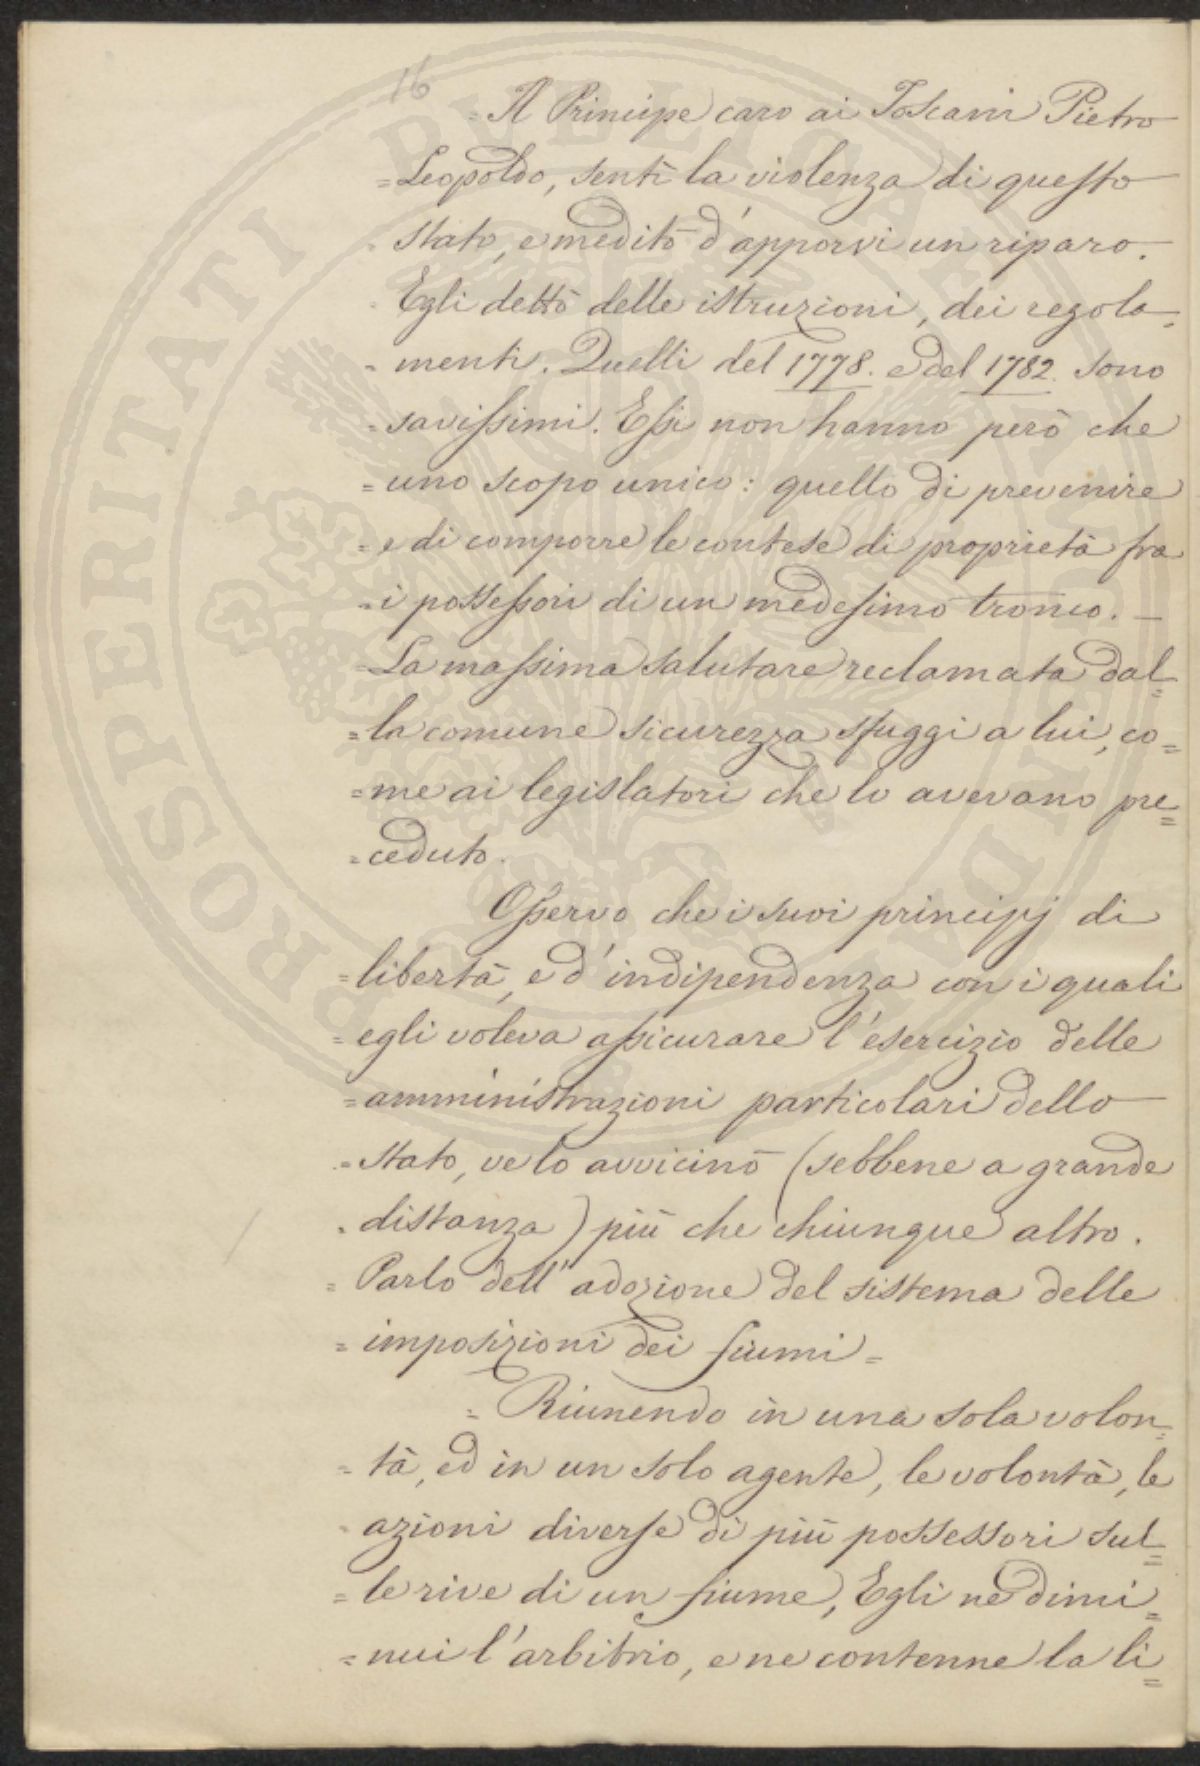 16
= Il Principe caro ai Toscani Pietro
= Leopoldo, sentì la violenza di questo
= stato, e meditò d'apporvi un riparo.
Egli dettò delle istruzioni, dei regola=
= menti. Quelli del 1778. e del 1782. sono
= savissimi. Essi non hanno però che
= uno scopo unico: quello di prevenire
= e di comporre le contese di proprietà fra
= i possessori di un medesimo tronco. —
= La massima salutare reclamata dal=
= la comune sicurezza sfuggì a lui, co=
= me ai legislatori che lo avevano pre=
= ceduto.
Osservo che i suoi principj di
= libertà, e d'indipendenza con i quali
= egli voleva assicurare l'esercizio delle
= amministrazioni particolari dello
= stato, ve lo avvicinò (sebbene a grande
= distanza) più che chiunque altro.
= Parlo dell'adozione del sistema delle
= imposizioni dei fiumi =
= Riunendo in una sola volon=
= tà, ed in un solo agente, le volontà, le
= azioni diverse di più possessori sul=
= le rive di un fiume, Egli ne dimi=
= nuì l'arbitrio, e ne contenne la li=
PROSPERITATI PUBLICAE AUGENDAE